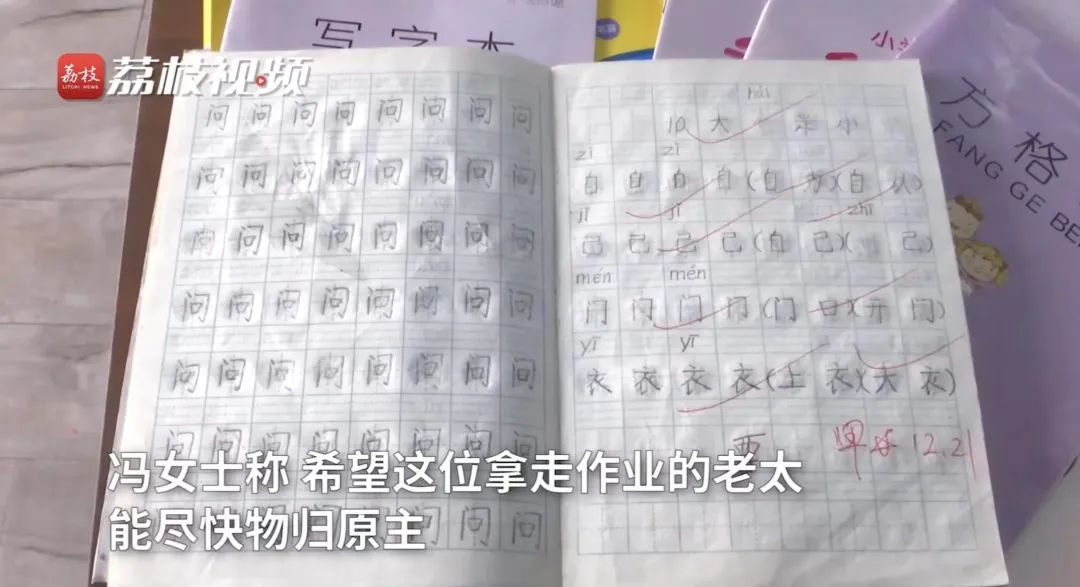 荔枝
LITCHI NEWS
荔枝视频
写字本
小
方格
FANG GE BE
问问问问问问问问
问问问问问问问问
问问问问问问问问
问问问问问问问问
问问问问问问问问
问问问问问问问问
问问问问问问问
10 大 小
zì zì
自自自自(自 )(自 从)
jǐ jǐ zhī
己己己己(自己)( 己)
mén mén
门门门门(门口)(开门)
yī yī
衣衣衣衣(上衣)(大衣)
西 12.21
冯女士称 希望这位拿走作业的老太
能尽快物归原主